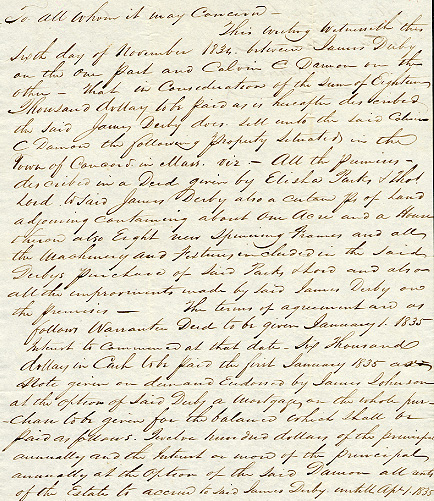 To all whom it may Concern -
This writing Witnesseth this
Sixth day of November 1834. between James Derby
on the one part and Calvin C Damon on the
other - that in Consideration of the sum of Eighteen
Thousand dollars to be paid as is hereafter described
the said James Derby does sell unto the said Calvin
C Damon the following property situated in the
Town of Concord in Mass. viz - All the premises
described in a Deed given by Elisha Parks &
Lord to said James Derby also a certain ps of Land
adjoining Containing about One Acre and a House
thereon also Eight new Spinning Frames and all
the Machinery and Fixtures included in the said
Derbys purchase of said Parks & Lord and also
all the improvments made by said James Derby on
the premises - The terms of agreement are as
follows Warrantee Deed to be given January 1. 1835
Interest to Commence at that date - Six Thousand
dollars in Cash to be paid the first January 1835 or
Note given on demand Endorsed by James Johnson
at the option of said Derby a Mortgage on the whole pur-
chase to be given for the balance which shall be
paid as follows. Twelve hundred dollars of the principal
annually and the Interest or more of the principal
annually at the Option of the said Damon all rents
of the Estate to accrue to said James Derby untill Apl 1. 1835